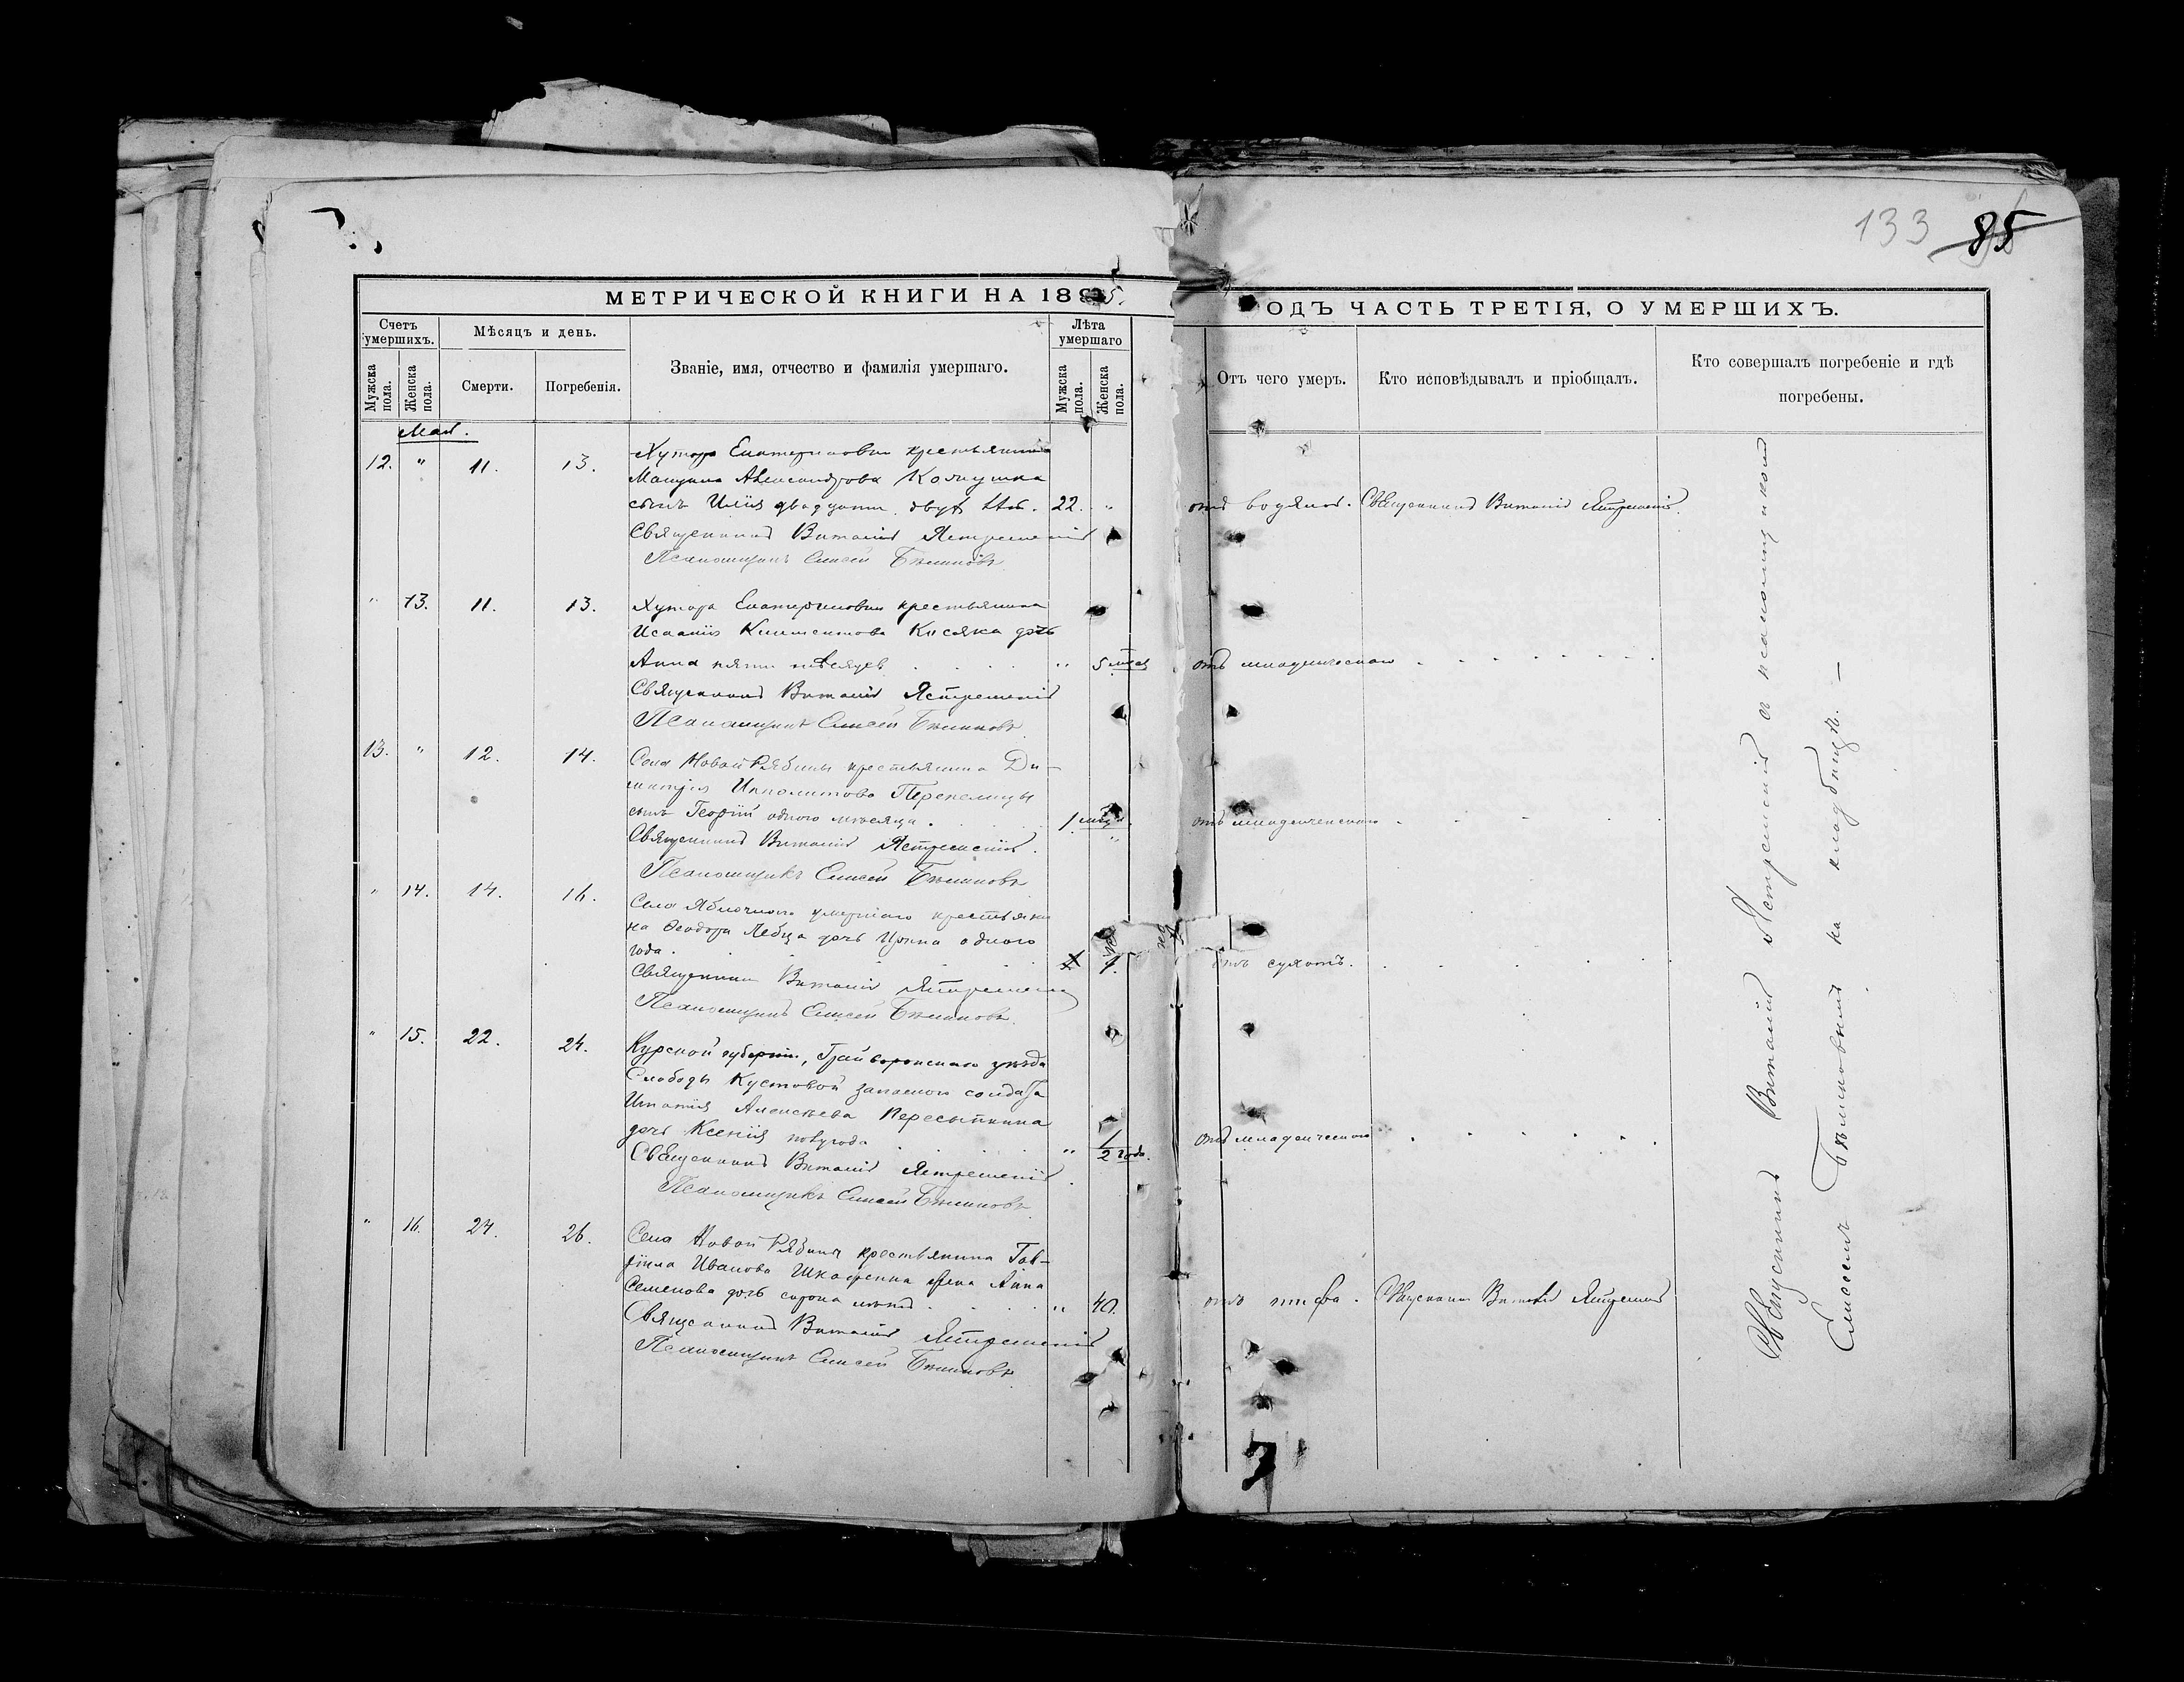 133 85
МЕТРИЧЕСКОЙ КНИГИ НА 1895 ОДЪ ЧАСТЬ ТРЕТІЯ, О УМЕРШИХЪ.
Счетъ умершихъ.
Мужска пола.
Женска пола.
Мѣсяцъ и день.
Смерти.
Погребенія.
Званіе, имя, отчество и фамилія умершаго.
Лѣта умершаго
Мужска пола.
Женска пола.
Отъ чего умеръ.
Кто исповѣдывалъ и пріобщалъ.
Кто совершалъ погребеніе и гдѣ погребены.
Мая.
12. " 11. 13. Хутора Екатериновки крестьянина
Александрова
сынъ Илія двадцати двухъ лѣт. 22. " отъ водяной. Священникъ Виталій Ястремскій
Священникъ Виталій Ястремскій
Псаломщикъ Елисей Бѣликовъ
" 13. 11. 13. Хутора Екатериновки крестьянина
Исаакія Климентова Кисяка дочь
Анна пяти мѣсяцев " 5 мѣся отъ младенческаго
Священникъ Виталій Ястремскій
Псаломщикъ Елисей Бѣликовъ
13. " 12. 14. Села Новой Рябины крестьянина Ди-
митрія Ипполитова Перепелицы
сынъ Георгій одного мѣсяца. 1. мѣся. " отъ младенческаго
Священникъ Виталій Ястремскій.
Псаломщикъ Елисей Бѣликовъ
" 14. 14. 16. Села Яблочнаго умершаго крестьяни
на Ѳеодора Лебца дочь Ирина одного
года. 1. отъ сухотъ.
Священникъ Виталій Ястремскій
Псаломщикъ Елисей Бѣликовъ
" 15. 22. 24. Курской губерніи, Грайворонскаго уѣзда
Слободы Кустовой запаснаго солдата
Игнатія Алексѣева Пересыпкина
дочь Ксенія полугода " 1/2 года. отъ младенческаго
Священникъ Виталій Ястремскій.
Псаломщикъ Елисей Бѣликовъ
" 16. 24. 26. Села Новой Рябины крестьянина Гав-
ріила Иванова жена Анна
Семенова дочь сорока лѣтъ " 40. отъ тифа. Священникъ Виталій Ястремскій
Священникъ Виталій Ястремскій
Псаломщикъ Елисей Бѣликовъ
Священникъ Виталій Ястремскій съ псаломщикомъ
Елисеемъ Бѣликовымъ на кладбищѣ. —